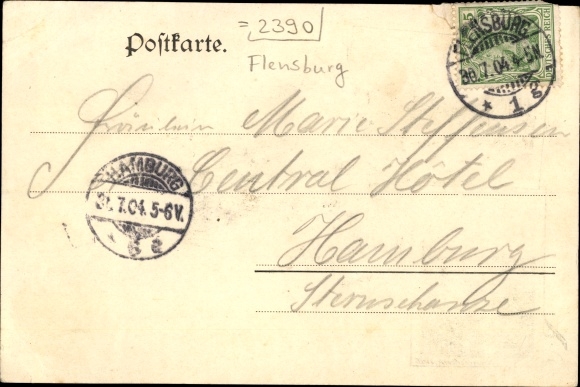 = 2390
Postkarte.
Flensburg
FLENSBURG
30.7.04.4-5N.
* 1 g
5
DEUTSCHES REICH
Fräulein Marie Steffensen
Central Hôtel
HAMBURG
31.7.04.5-6V.
Hamburg
Sternschanze